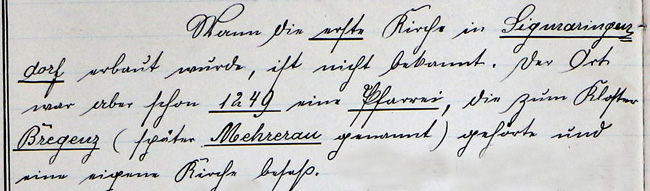 Wann die erste Kirche in Sigmaringen-
dorf erbaut wurde, ist nicht bekannt. Der Ort
war aber schon 1249 eine Pfarrei, die zum Kloster
Bregenz (später Mehrerau genannt) gehörte und
eine eigene Kirche besaß.